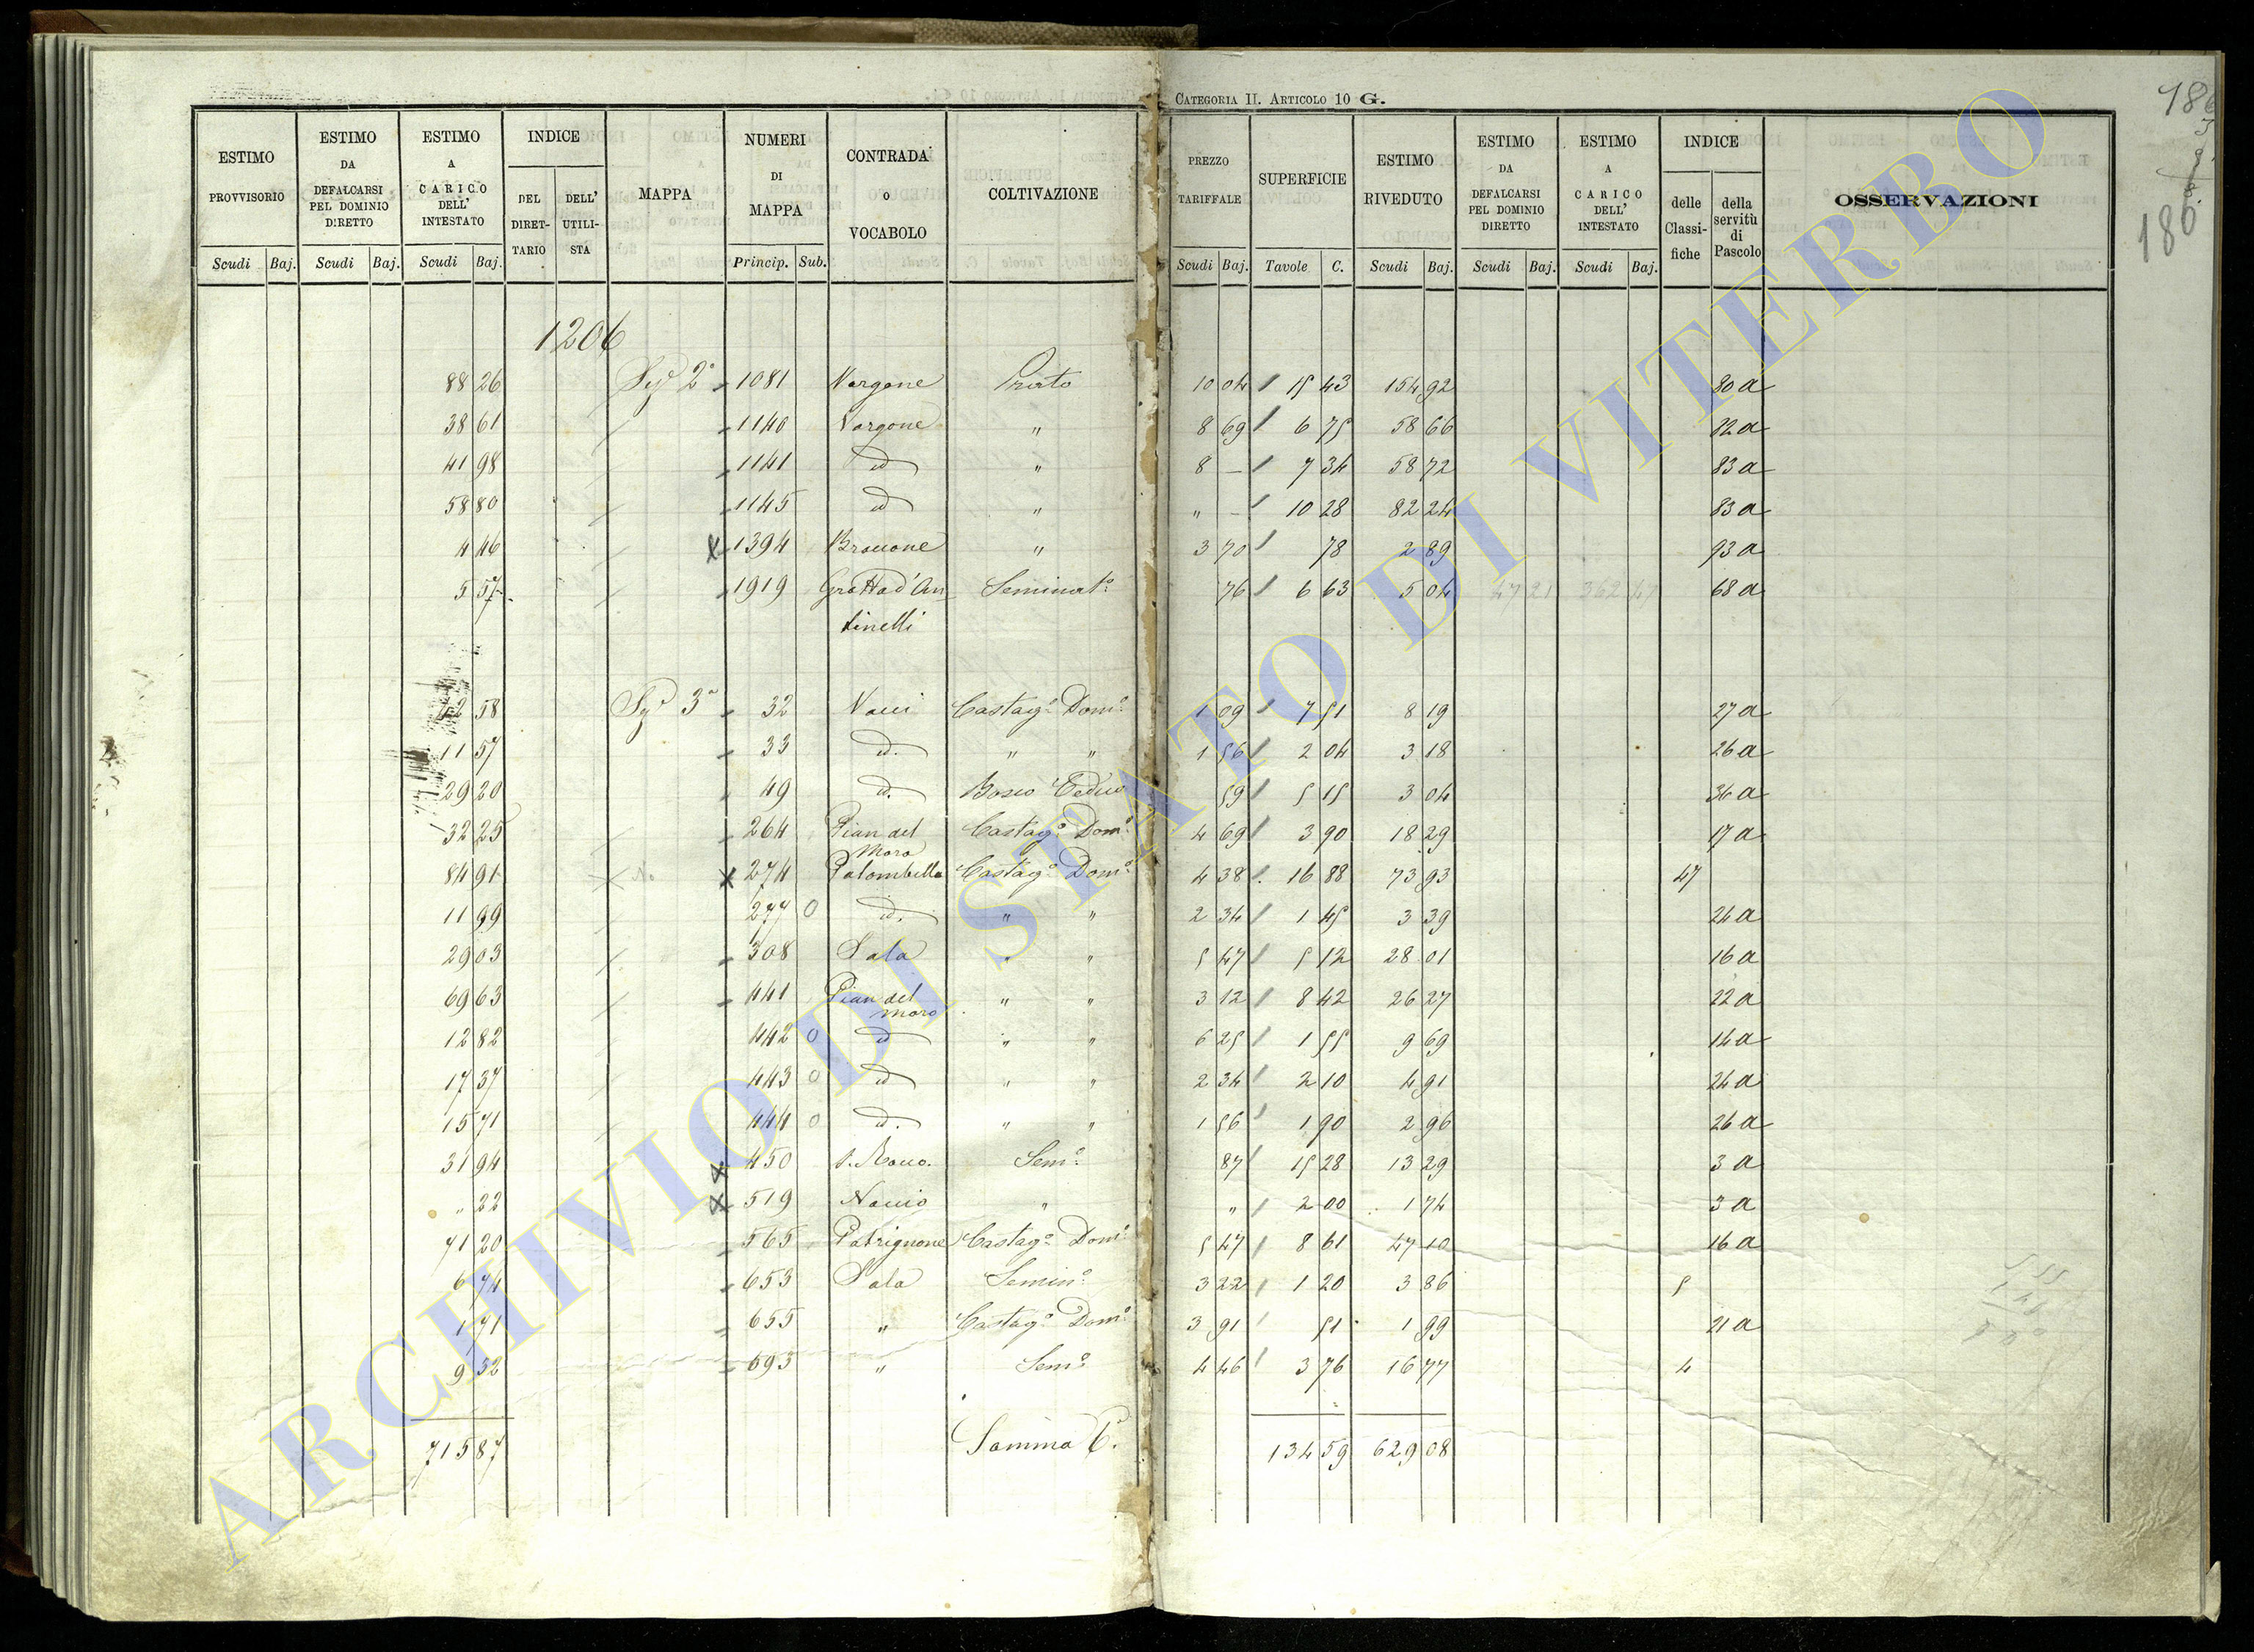 CATEGORIA II. ARTICOLO 10 G.
186
180
ESTIMO PROVVISORIO | ESTIMO DA DEFALCARSI PEL DOMINIO DIRETTO | ESTIMO A CARICO DELL' INTESTATO | INDICE DEL DIRET-TARIO | DELL' UTILI-STA | MAPPA | NUMERI DI MAPPA | CONTRADA o VOCABOLO | COLTIVAZIONE | PREZZO TARIFFALE | SUPERFICIE | ESTIMO RIVEDUTO | ESTIMO DA DEFALCARSI PEL DOMINIO DIRETTO | ESTIMO A CARICO DELL' INTESTATO | INDICE delle Classi-fiche | della servitù di Pascolo | OSSERVAZIONI
Scudi Baj. | Scudi Baj. | Scudi Baj. | Princip. Sub. | Scudi Baj. | Tavole C. | Scudi Baj. | Scudi Baj. | Scudi Baj.
1206
88 26 Sez. 2ª 1081 Vargone Prato 10 04 15 43 154 92 80 a
38 61 1140 Vargone " 8 69 6 75 58 66 82 a
41 98 1141 id " 8 — 7 34 58 72 83 a
58 80 1145 id " " — 10 28 82 24 83 a
4 46 1394 " 3 70 78 2 89 93 a
5 57 1919 Grotta d'An Seminat.o 76 6 63 5 04 47 21 362 47 68 a
tinelli
42 58 3ª 32 Castag.o Dom.o 1 09 7 51 8 19 27 a
11 57 33 id. " " 1 56 2 04 3 18 26 a
29 20 49 id. Bosco Ceduo 59 5 15 3 04 36 a
32 25 264 Pian del Castag.o Dom.o 4 69 3 90 18 29 17 a
Moro
84 91 274 Palombella Castag.o Dom.o 4 38 16 88 73 93 47
11 99 277 0 id. " " 2 34 1 45 3 39 24 a
29 03 308 Sala " " 5 47 5 12 28 01 16 a
69 63 441 Pian del " " 3 12 8 42 26 27 22 a
Moro
12 82 442 0 id " " 6 25 1 55 9 69 14 a
17 37 443 0 id " " 2 34 2 10 4 91 24 a
15 71 444 0 id. " " 1 56 1 90 2 96 26 a
31 94 450 S. Rocco. Sem.o 87 15 28 13 29 3 a
" 22 519 " " 2 00 1 74 3 a
71 20 565 Patrignone Castag.o Dom.o 5 47 8 61 47 10 16 a
6 74 653 Sala Semin.o 3 22 1 20 3 86 5
1 71 655 " Castag.o Dom.o 3 91 51 1 99 21 a
9 52 693 " Sem.o 4 46 3 76 16 77 4
715 87 Somma C. 134 59 629 08
ARCHIVIO DI STATO DI VITERBO